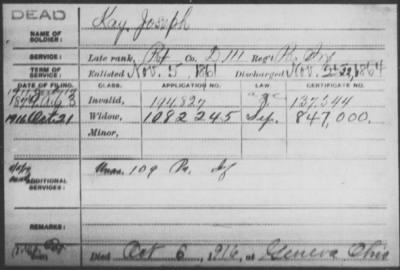 DEAD
NAME OF SOLDIER: Kay, Joseph
SERVICE: Late rank, Pvt Co. D, 111 Reg't Pa. Inf
TERM OF SERVICE: Enlisted Nov. 5, 1861 Discharged Nov. 1864
DATE OF FILING. CLASS. APPLICATION NO. LAW. CERTIFICATE NO.
Aug 3 Invalid, 194827 137,544
1916 Oct 21 Widow, 1082245 847,000.
Minor,
ADDITIONAL SERVICES: 109 Pa. Inf
REMARKS:
Died Oct 6, 1916, at Geneva Ohio